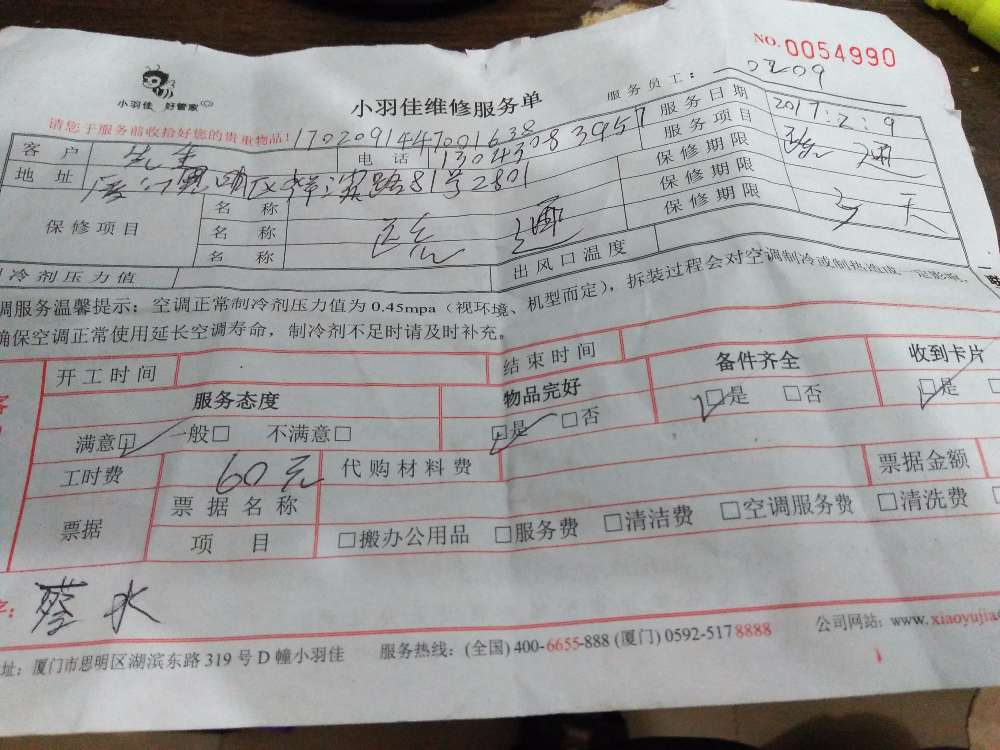 NO.0054990
小羽佳 好管家
小羽佳维修服务单
服务员工: 0209
请您于服务前收拾好您的贵重物品! 1702091447001638
服务日期 2017:2:9
客户 先生 电话 13043083957 服务项目 疏通
地址 厦门思明区祥滨路81号2801 保修期限
保修项目 名称 保修期限
名称 疏通 保修期限 天
名称
冷剂压力值 出风口温度
调服务温馨提示: 空调正常制冷剂压力值为 0.45mpa (视环境、机型而定), 拆装过程会对空调制冷或制热造成一定影响,
确保空调正常使用延长空调寿命, 制冷剂不足时请及时补充。
开工时间 结束时间
服务态度 物品完好 备件齐全 收到卡片
满意☑ 一般□ 不满意□ ☑是 □否 ☑是 □否 ☑是
工时费 60元 代购材料费 票据金额
票据 票据名称
项目 □搬办公用品 □服务费 □清洁费 □空调服务费 □清洗费
字: 蔡水
址: 厦门市思明区湖滨东路 319 号 D 幢小羽佳 服务热线: (全国) 400-6655-888 (厦门) 0592-517 8888 公司网站: www.xiaoyujia